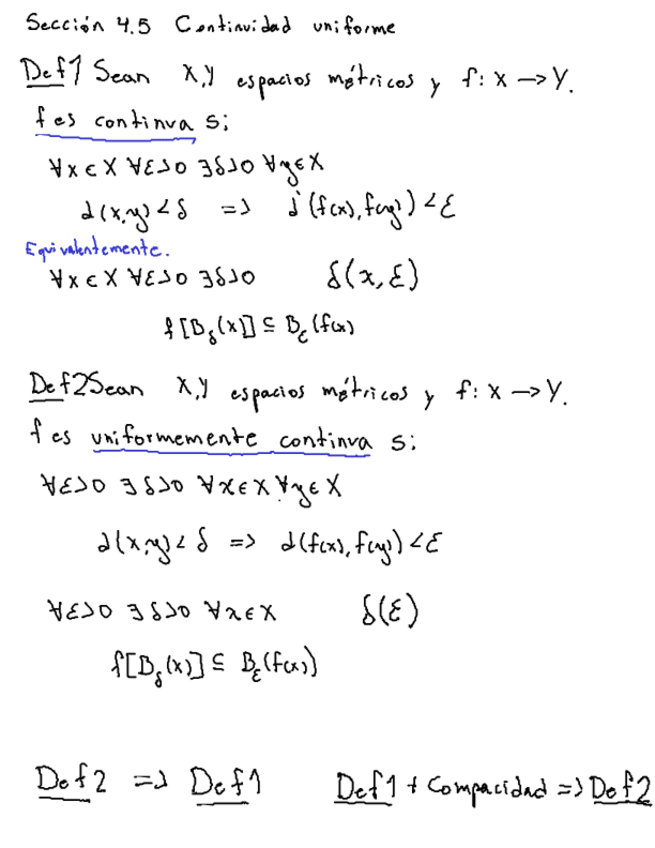 Sección 4.5 Continuidad uniforme
Def1 Sean X,Y espacios métricos y f: X → Y.
f es continua si
∀x ∈ X ∀ε>0 ∃δ>0 ∀y ∈ X
d(x,y) < δ => d(f(x), f(y)) < ε
Equivalentemente.
∀x ∈ X ∀ε>0 ∃δ>0 δ(x,ε)
f[B_δ(x)] ⊆ B_ε(f(x)
Def2 Sean X,Y espacios métricos y f: X → Y.
f es uniformemente continua si
∀ε>0 ∃δ>0 ∀x ∈ X ∀y ∈ X
d(x,y) < δ => d(f(x), f(y)) < ε
∀ε>0 ∃δ>0 ∀x ∈ X δ(ε)
f[B_δ(x)] ⊆ B_ε(f(x))
Def2 => Def1 Def1 + Compacidad => Def2